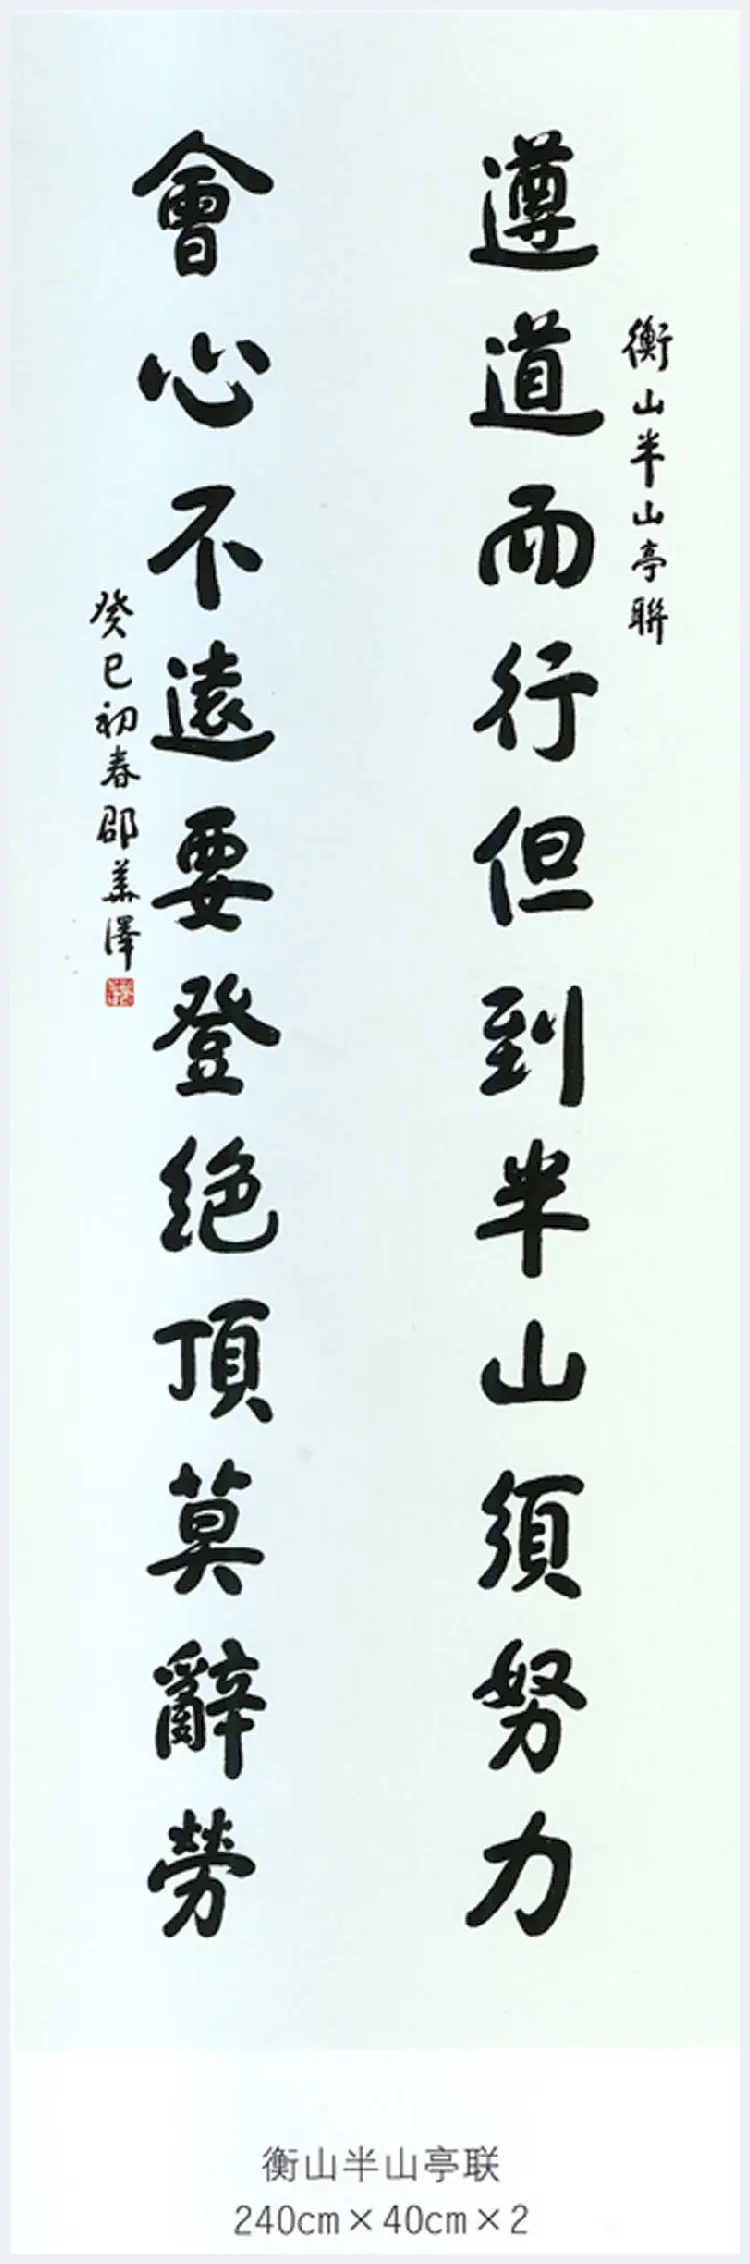 衡山半山亭聯
遵道而行但到半山須努力
會心不遠要登絕頂莫辭勞
癸巳初春邵華澤
衡山半山亭联
240cm×40cm×2